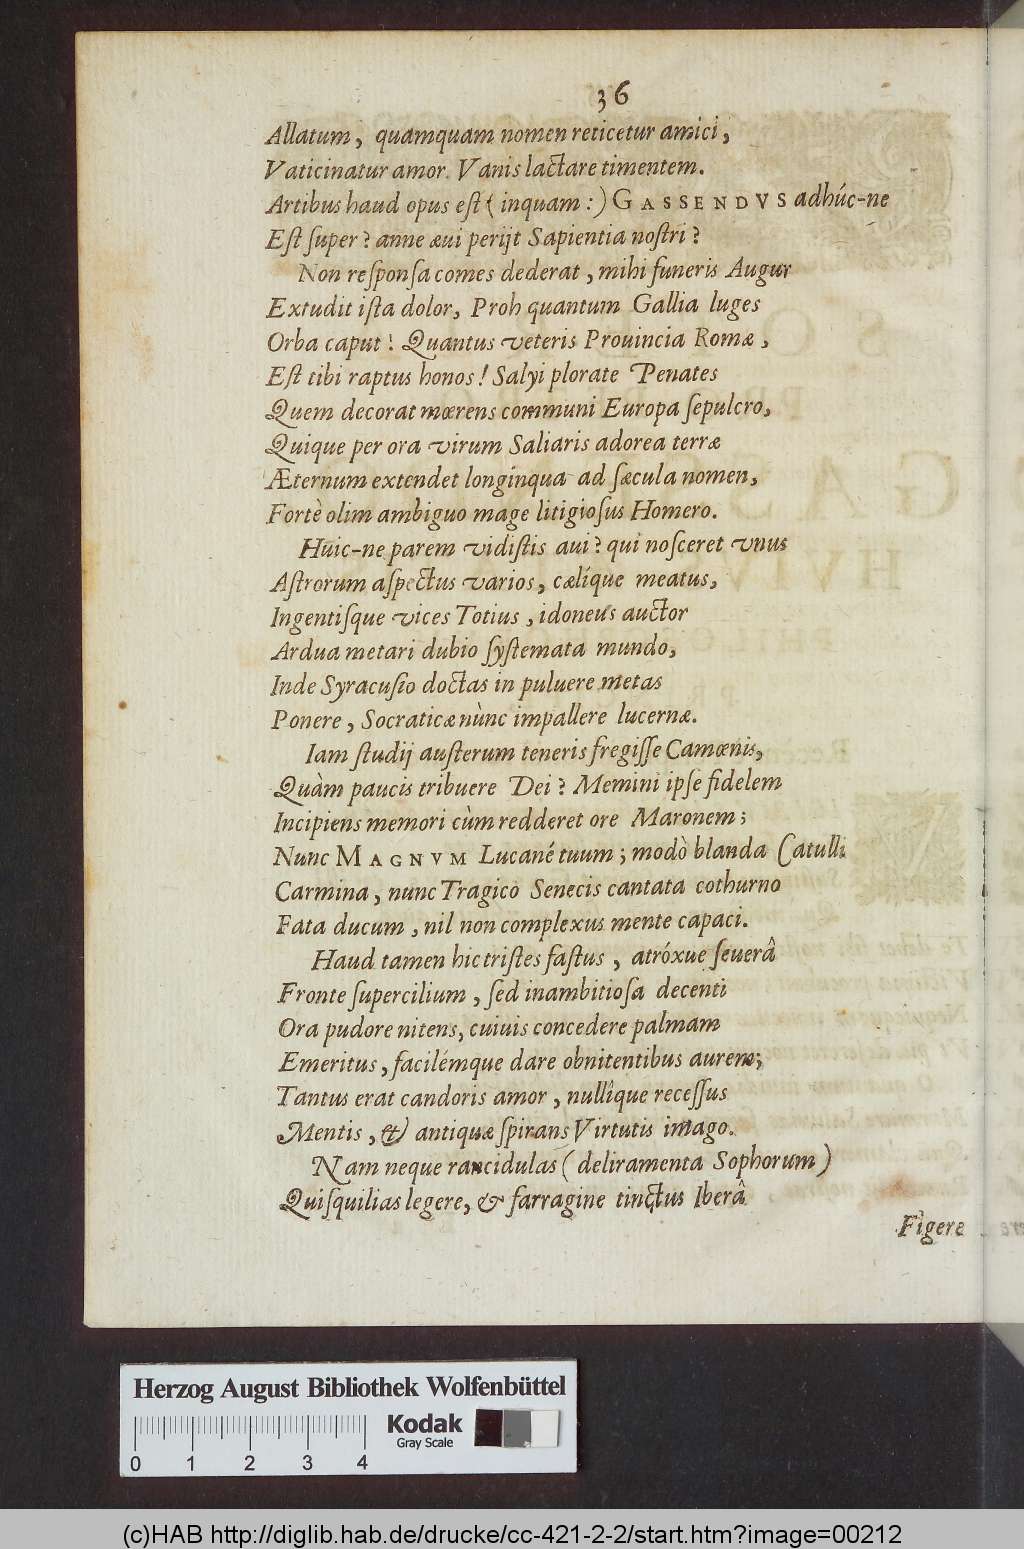 36
Allatum, quamquam nomen reticetur amici,
Vaticinatur amor. Vanis lactare timentem.
Artibus haud opus est (inquam:) GASSENDVS adhúc-ne
Est super? anne æui perijt Sapientia nostri?
Non responsa comes dederat, mihi funeris Augur
Extudit ista dolor, Proh quantum Gallia luges
Orba caput! Quantus veteris Prouincia Romæ,
Est tibi raptus honos! Salyi plorate Penates
Quem decorat mœrens communi Europa sepulcro,
Quique per ora virum Saliaris adorea terræ
Æternum extendet longínqua ad sæcula nomen,
Fortè olim ambiguo mage litigiosus Homero.
Huic-ne parem vidistis aui? qui nosceret vnus
Astrorum aspectus varios, cælíque meatus,
Ingentisque vices Totius, idoneus auctor
Ardua metari dubio systemata mundo,
Inde Syracusio doctas in puluere metas
Ponere, Socraticæ nùnc impallere lucernæ.
Iam studij austerum teneris fregisse Camœnis,
Quàm paucis tribuere Dei? Memini ipse fidelem
Incipiens memori cùm redderet ore Maronem;
Nunc MAGNVM Lucané tuum; modò blanda Catulli
Carmina, nunc Tragico Senecis cantata cothurno
Fata ducum, nil non complexus mente capaci.
Haud tamen hic tristes fastus, atróxue seuerâ
Fronte supercilium, sed inambitiosa decenti
Ora pudore nitens, cuiuis concedere palmam
Emeritus, facilémque dare obnitentibus aurem;
Tantus erat candoris amor, nullîque recessus
Mentis, & antiquæ spirans Virtutis imago.
Nam neque rancidulas (deliramenta Sophorum)
Quisquilias legere, & farragine tinctus Iberâ
Figere
Herzog August Bibliothek Wolfenbüttel
Kodak
Gray Scale
0 1 2 3 4
(c)HAB http://diglib.hab.de/drucke/cc-421-2-2/start.htm?image=00212